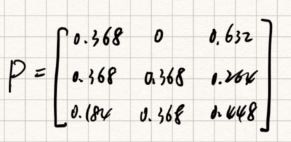 0.368 0 0.632
P = 0.368 0.368 0.264
0.184 0.368 0.448